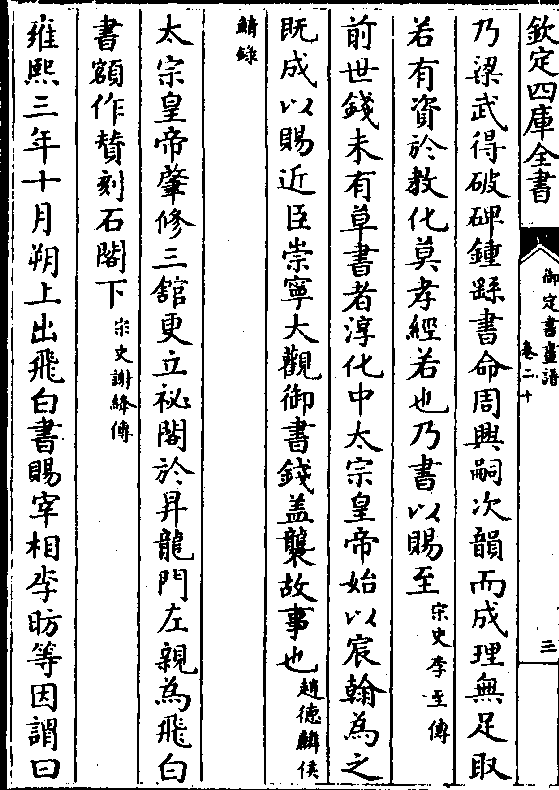 欽定四庫全書
御定書畫譜
卷二十
三
乃梁武得破碑鍾繇書命周興嗣次韻而成理無足取
若有資於教化莫孝經若也乃書以賜至宋史李至傳
前世錢未有草書者淳化中太宗皇帝始以宸翰為之
既成以賜近臣崇寧大觀御書錢盖襲故事也趙德麟侯
鯖錄
太宗皇帝肇修三館更立祕閣於昇龍門左親為飛白
書額作賛刻石閣下宋史謝絳傳
雍熙三年十月朔上出飛白書賜宰相李昉等因謂曰